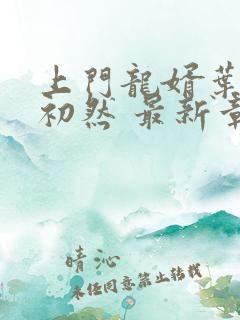 上門龍婿葉
初然 最新章
晴沁
未任同意禁止轉載